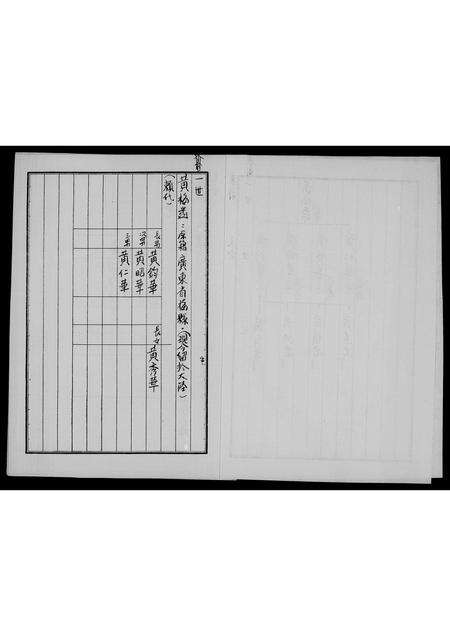 一世
黃梅​：原籍廣東省梅縣：(現今留於大陸)
(顏代)
長男 黃鈞華
次男 黃昭華
三男 黃仁華
長女 黃秀華